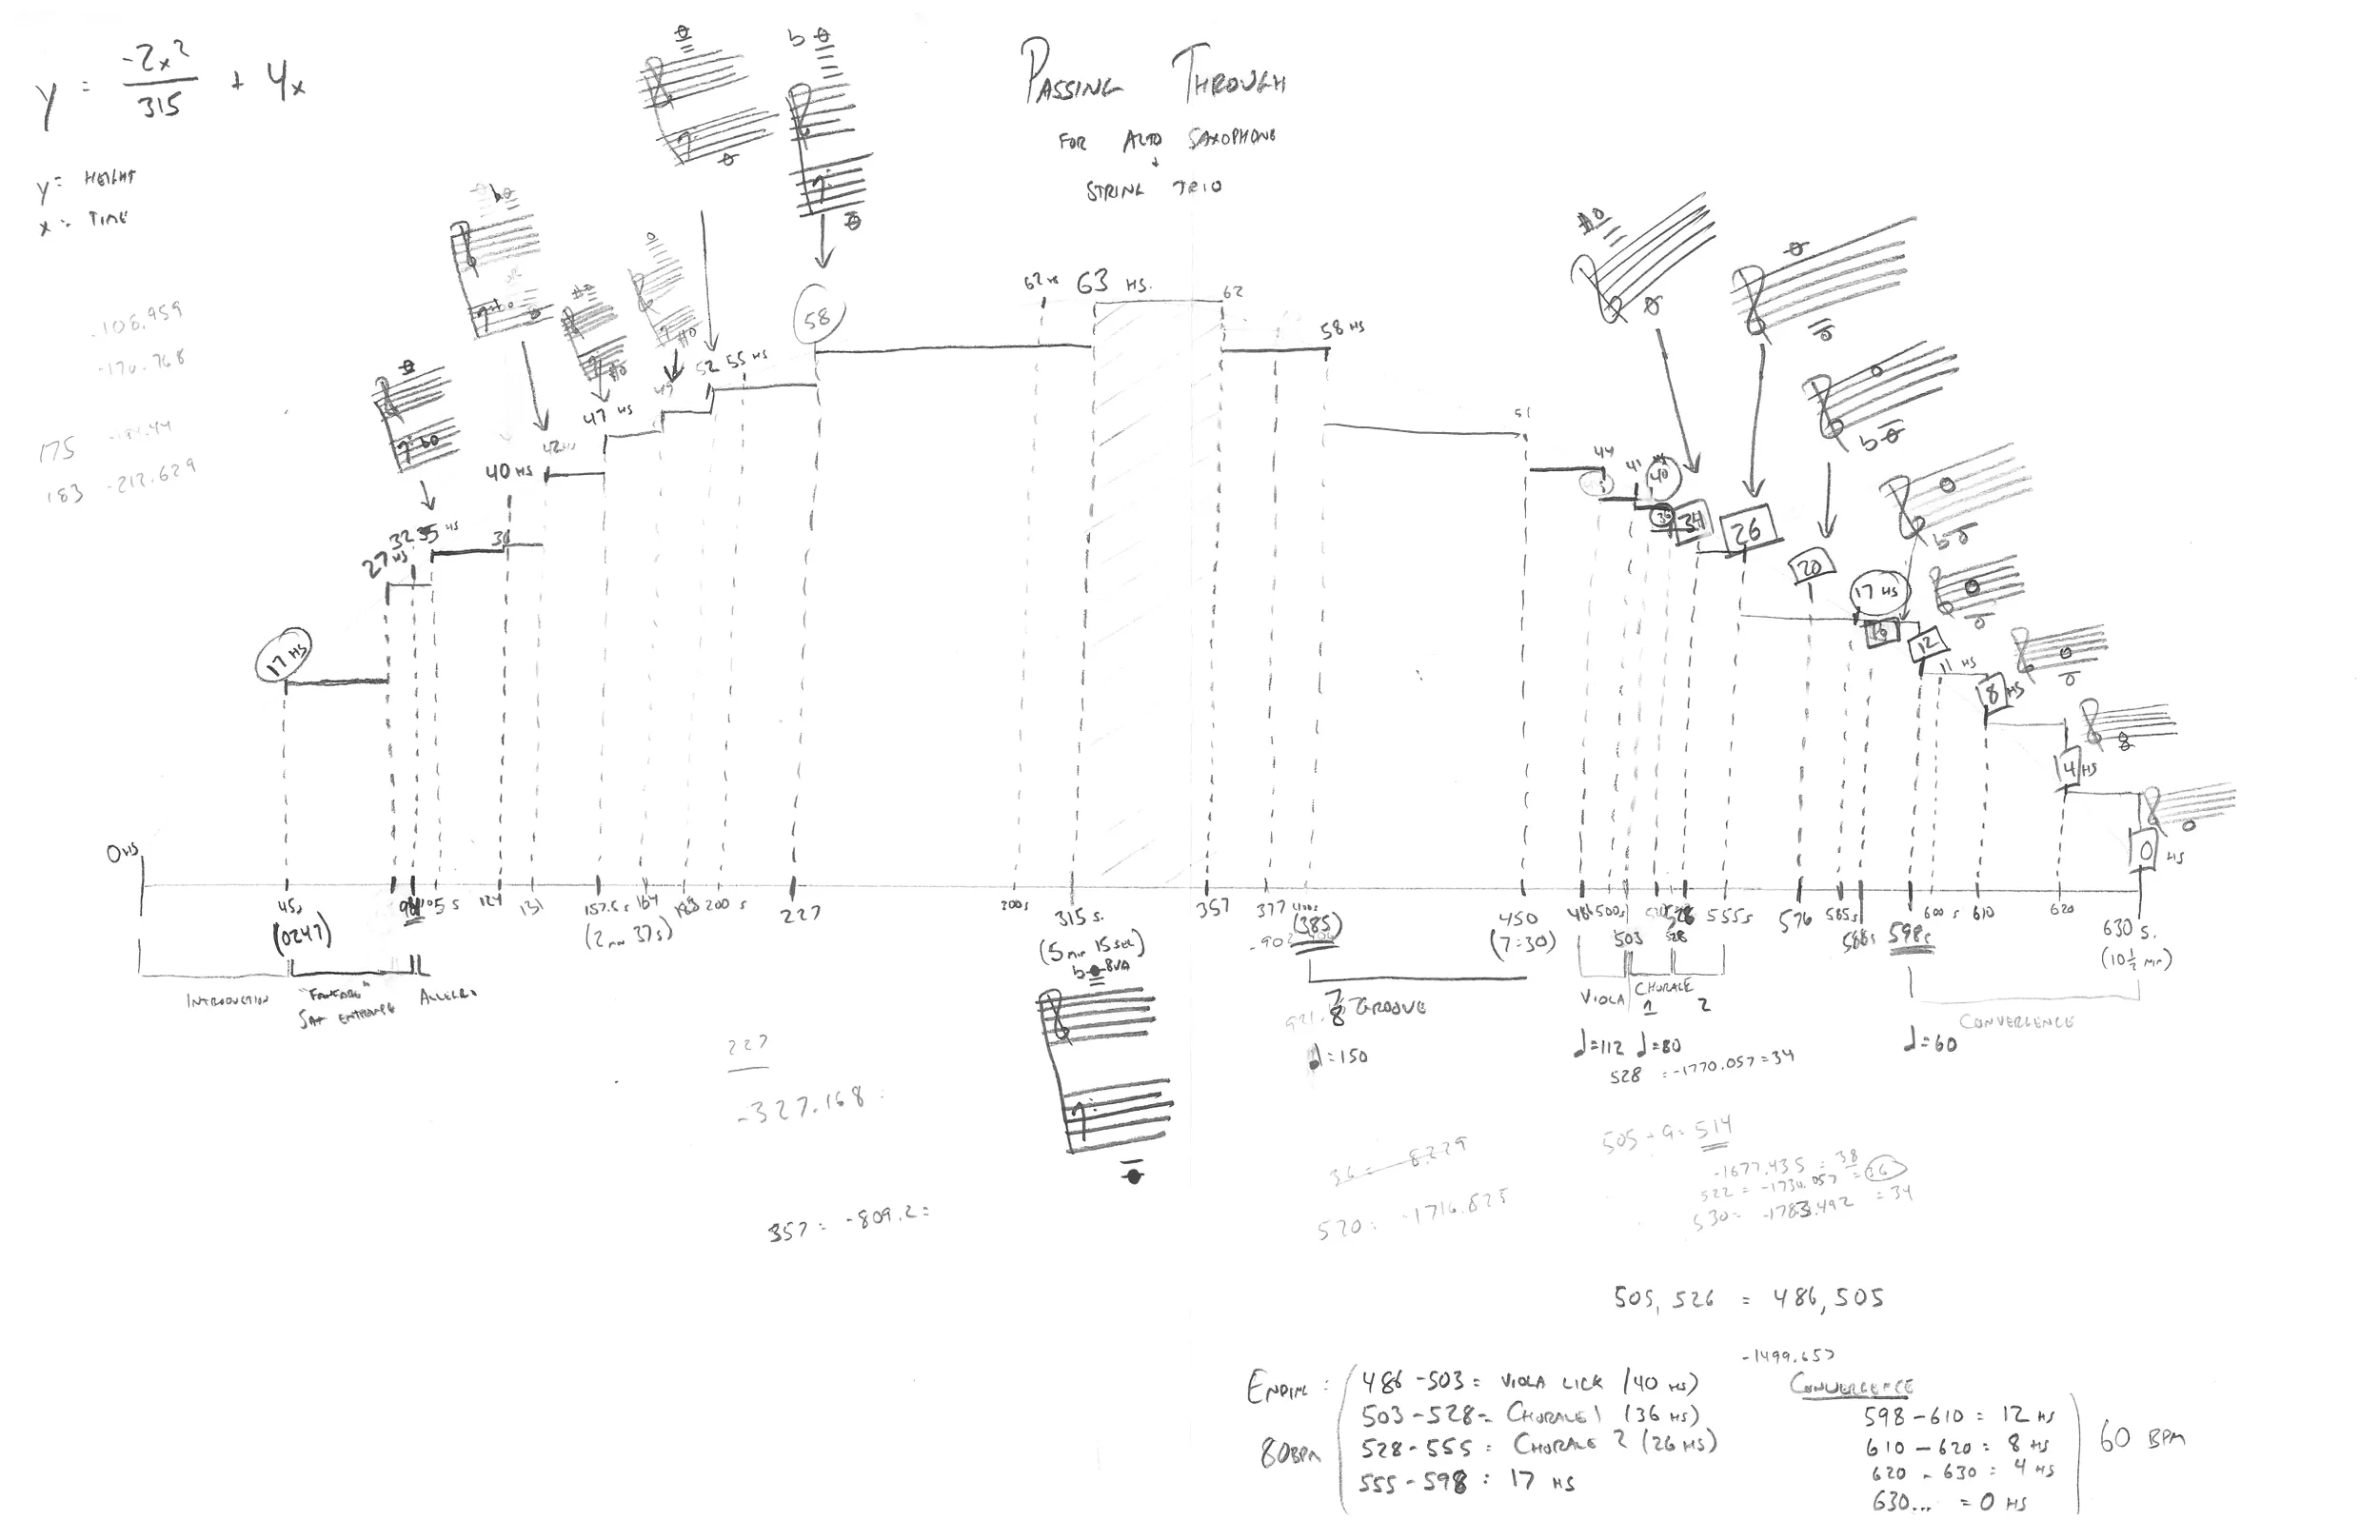 y = -2x² / 315 + 4x
y = HEIGHT
x = TIME
PASSING THROUGH
FOR ALTO SAXOPHONE
+
STRING TRIO
-106.959
-170.768
175
183 -212.629
17 HS
27 HS
32
35 HS
40 HS
36
42 HS
47 HS
49
52
55 HS
58
62 HS
63 HS.
62
58 HS
51
44
41
40
36
34
26
20
17 HS
16
12
11 HS
8 HS
4 HS
0 HS
0 HS
45s
(0247)
105 s
124
131
157.5 s
(2 min 37s)
164
183
200 s
227
315 s.
(5 min 15 sec)
8va
357
377
(385)
450
(7:30)
486
500s
503
528
528
555s
576
585s
588s
598s
600 s
610
620
630 s.
(10 ½ min)
INTRODUCTION
"FANFARE"
SAX ENTRANCE
ACCEL.
7/8 GROOVE
♩=150
VIOLA
CHORALE
1 2
♩=112 ♩=80
528 = -1770.057 = 34
CONVERGENCE
♩=60
227
-327.168 =
357 = -809.2 =
36 = 8.229
520 = -1716.825
505 + 9 = 514
-1677.435 = 38
522 = -1734.057 = 36
530 = -1783.492 = 34
505, 526 = 486, 505
-1499.657
ENDING :
80 BPM
486 - 503 = VIOLA LICK (40 HS)
503 - 528 = CHORALE 1 (36 HS)
528 - 555 = CHORALE 2 (26 HS)
555 - 598 : 17 HS
CONVERGENCE
598 - 610 = 12 HS
610 - 620 = 8 HS
620 - 630 = 4 HS
630... = 0 HS
60 BPM